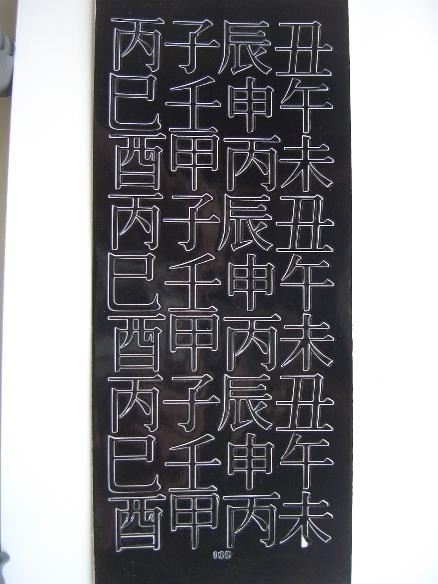 丙子辰丑
巳壬申午
酉甲丙未
丙子辰丑
巳壬申午
酉甲丙未
丙子辰丑
巳壬申午
酉甲丙未
165